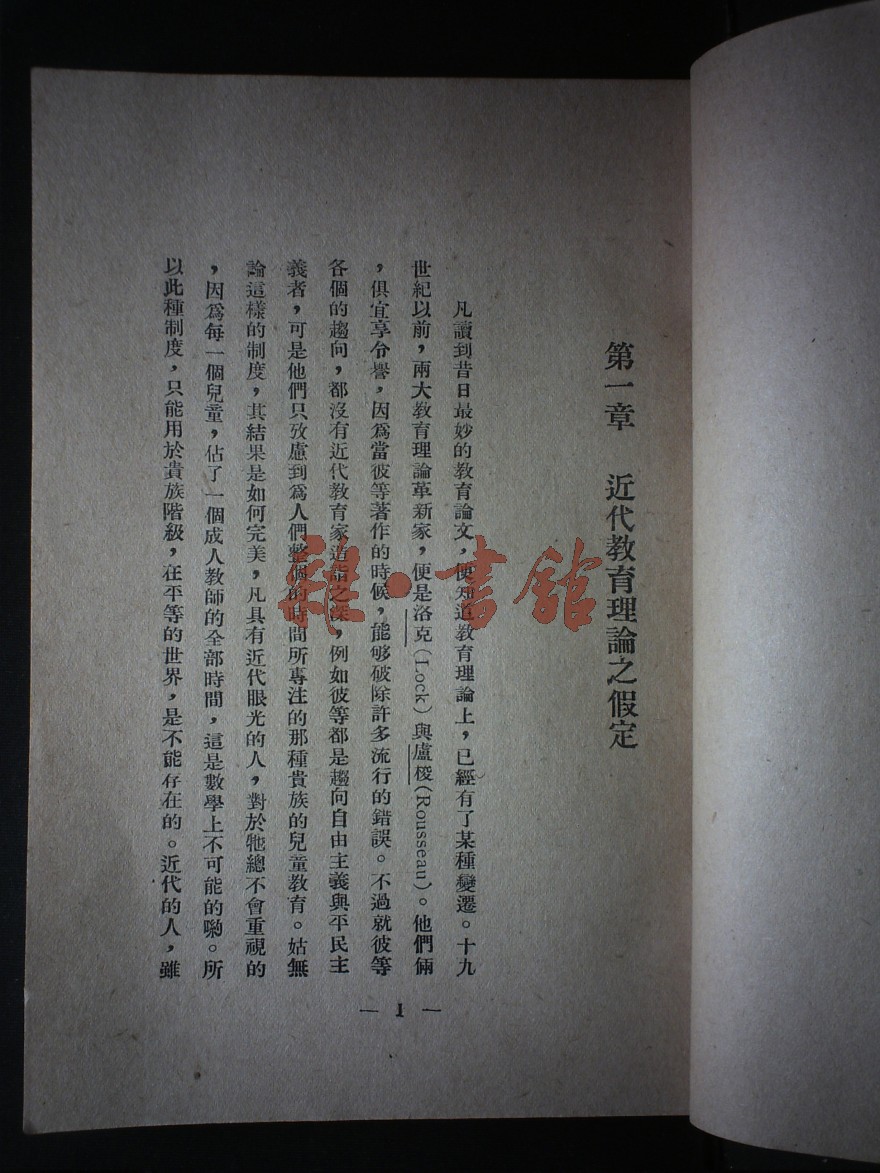 第一章　近代教育理論之假定
凡讀到昔日最妙的教育論文，便知道教育理論上，已經有了某種變遷。十九
世紀以前，兩大教育理論革新家，便是洛克(Lock)與盧梭(Rousseau)。他們倆
，俱宜享令譽，因爲當彼等著作的時候，能够破除許多流行的錯誤。不過就彼等
各個的趨向，都沒有近代教育家造詣之深，例如彼等都是趨向自由主義與平民主
義者，可是他們只攷慮到爲人們整個的時間所專注的那種貴族的兒童教育。姑無
論這樣的制度，其結果是如何完美，凡具有近代眼光的人，對於牠總不會重視的
，因爲每一個兒童，佔了一個成人教師的全部時間，這是數學上不可能的喲。所
以此種制度，只能用於貴族階級，在平等的世界，是不能存在的。近代的人，雖
— 1 —
雜·書館